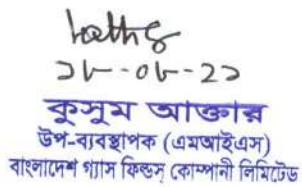 ১৮-০৮-২১
কুসুম আক্তার
উপ-ব্যবস্থাপক (এমআইএস)
বাংলাদেশ গ্যাস ফিল্ডস্ কোম্পানী লিমিটেড